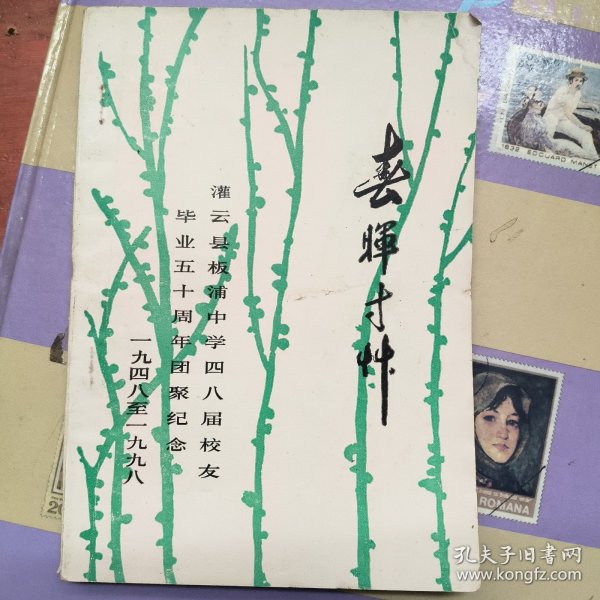 春暉寸艸
灌云县板浦中学四八届校友
毕业五十周年团聚纪念
一九四八至一九九八
1832 EDOUARD MANET
ROMANA
20
孔夫子旧书网
www.kongfz.com